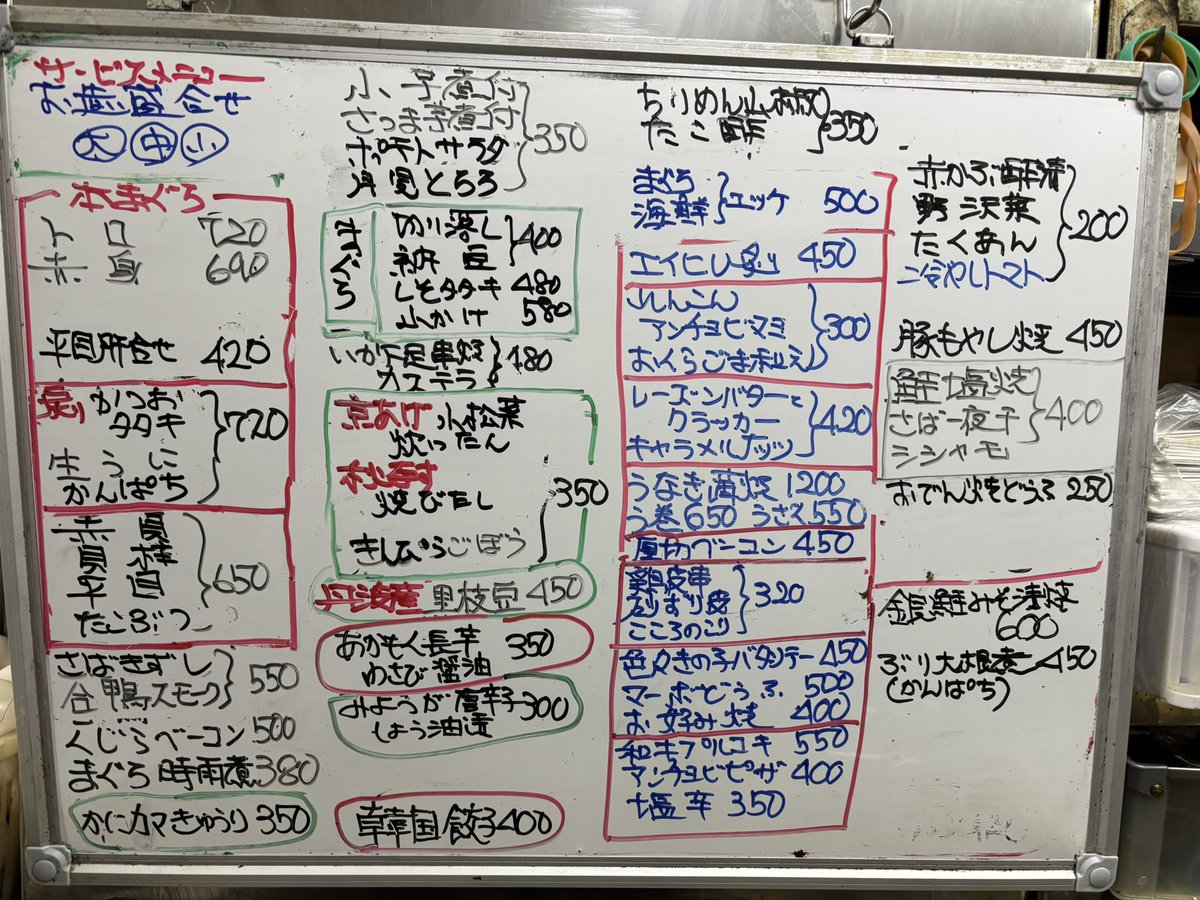 サービスメニュー
お造り盛合せ
大 中 小
本まぐろ
トロ 720
赤身 690
平目肝合せ 420
炙り かつお
タタキ
生うに
かんぱち
720
赤貝
貝柱
平目
たこぶつ
650
さばきずし
合鴨スモーク
550
くじらベーコン 500
まぐろ時雨煮 380
かにカマきゅうり 350
小芋煮付
さつま芋煮付
ポテトサラダ
月見とろろ
350
まぐろ
納豆
400
しそタタキ 480
山かけ 580
いか下足串焼
カステラ
480
京あげ 小松菜
炊いたん
焼びたし
きんぴらごぼう
350
丹波産 黒枝豆 450
あかもく長芋
わさび醤油
350
みょうが唐辛子
しょう油漬
300
韓国餃子 400
ちりめん山椒
たこ酢
350
まぐろ
海鮮
ユッケ 500
エイヒレ炙り 450
アンチョビマミ
おくらごま和え
300
レーズンバターと
クラッカー
キャラメルナッツ
420
うなぎ蒲焼 1200
う巻 650 うざく 550
厚切ベーコン 450
鶏皮串
砂ずり皮
こころのこり
320
色々きの子バタンテー 450
マーボどうふ 500
お好み焼 400
和牛プルコギ 550
アンチョビピザ 400
塩辛 350
赤かぶ酢漬
野沢菜
たくあん
冷やしトマト
200
豚もやし焼 450
鮭塩焼
さば一夜干
シシャモ
400
おでん焼どうふ 250
銀鮭みそ漬焼
600
ぶり大根煮 450
(かんぱち)